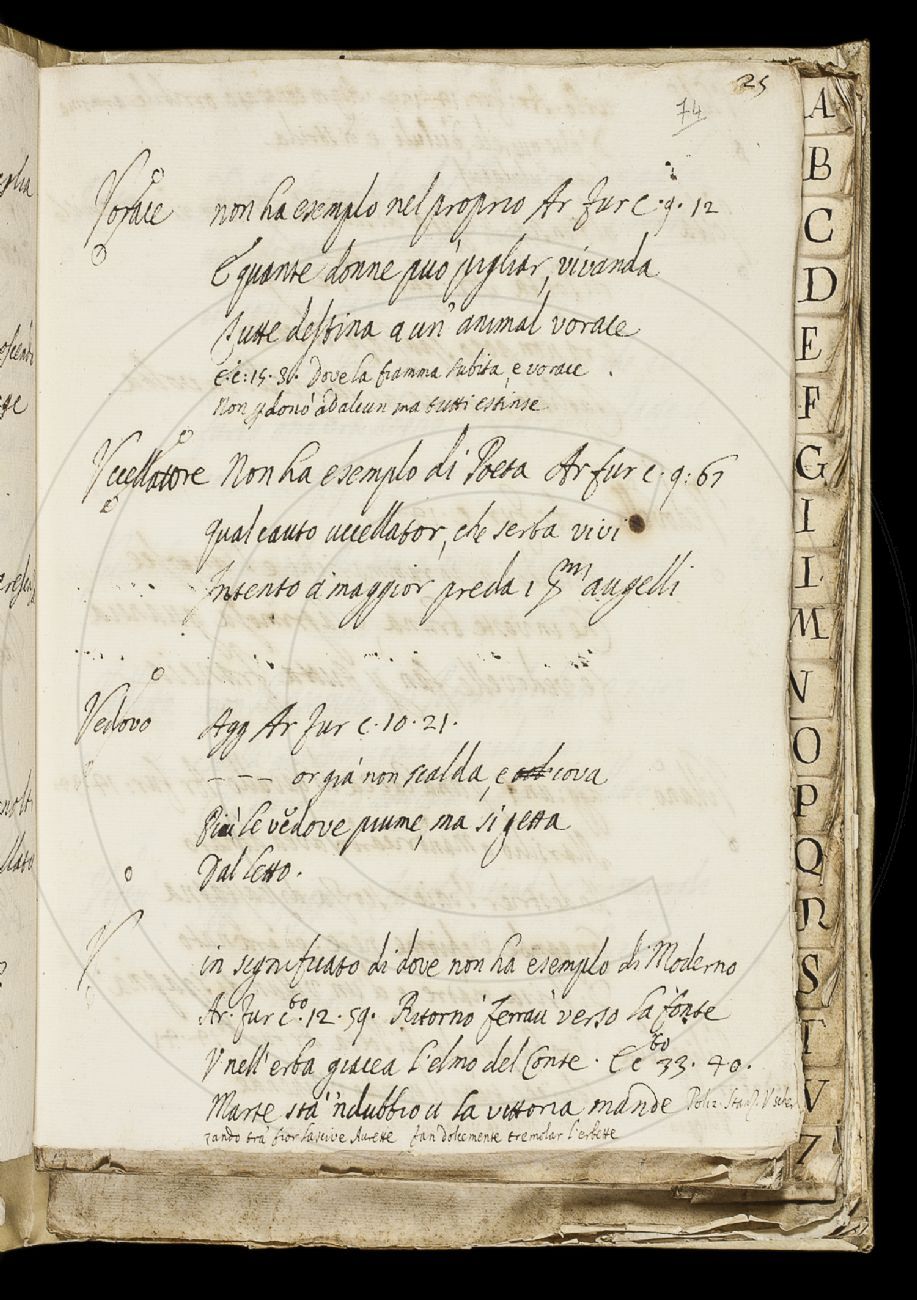 25
74
Vorace non ha esemplo nel proprio Ar Fur c. 9. 12
E quante donne può pigliar, vivanda
Tutte destina a un' animal vorace
E c: 15. 38. Dove la fiamma subita, e vorace
Non pdonò ad alcun ma tutti estinse
Uccellatore Non ha esemplo di Poeta Ar fur c. 9: 67
Qual cauto uccellator, che serba vivi
Intento a maggior preda i pmi augelli
Vedovo Agg Ar Fur c. 10. 21.
--- or già non scalda, e cova
Più le vedove piume, ma si getta
Dal letto.
V in significato di dove non ha esemplo di Moderno
Ar. Fur c.to 12. 59. Ritornò Ferraù verso la fonte
V nell'erba giacea l'elmo del Conte. E c.to 33. 40.
Marte stà 'ndubbio u la vittoria mande Poliz. Stanz. V scher
zando tra' fior lascive Aurette fan dolcemente tremolar l'erbette
A
B
C
D
E
F
G
I
L
M
N
O
P
Q
R
S
T
V
Z